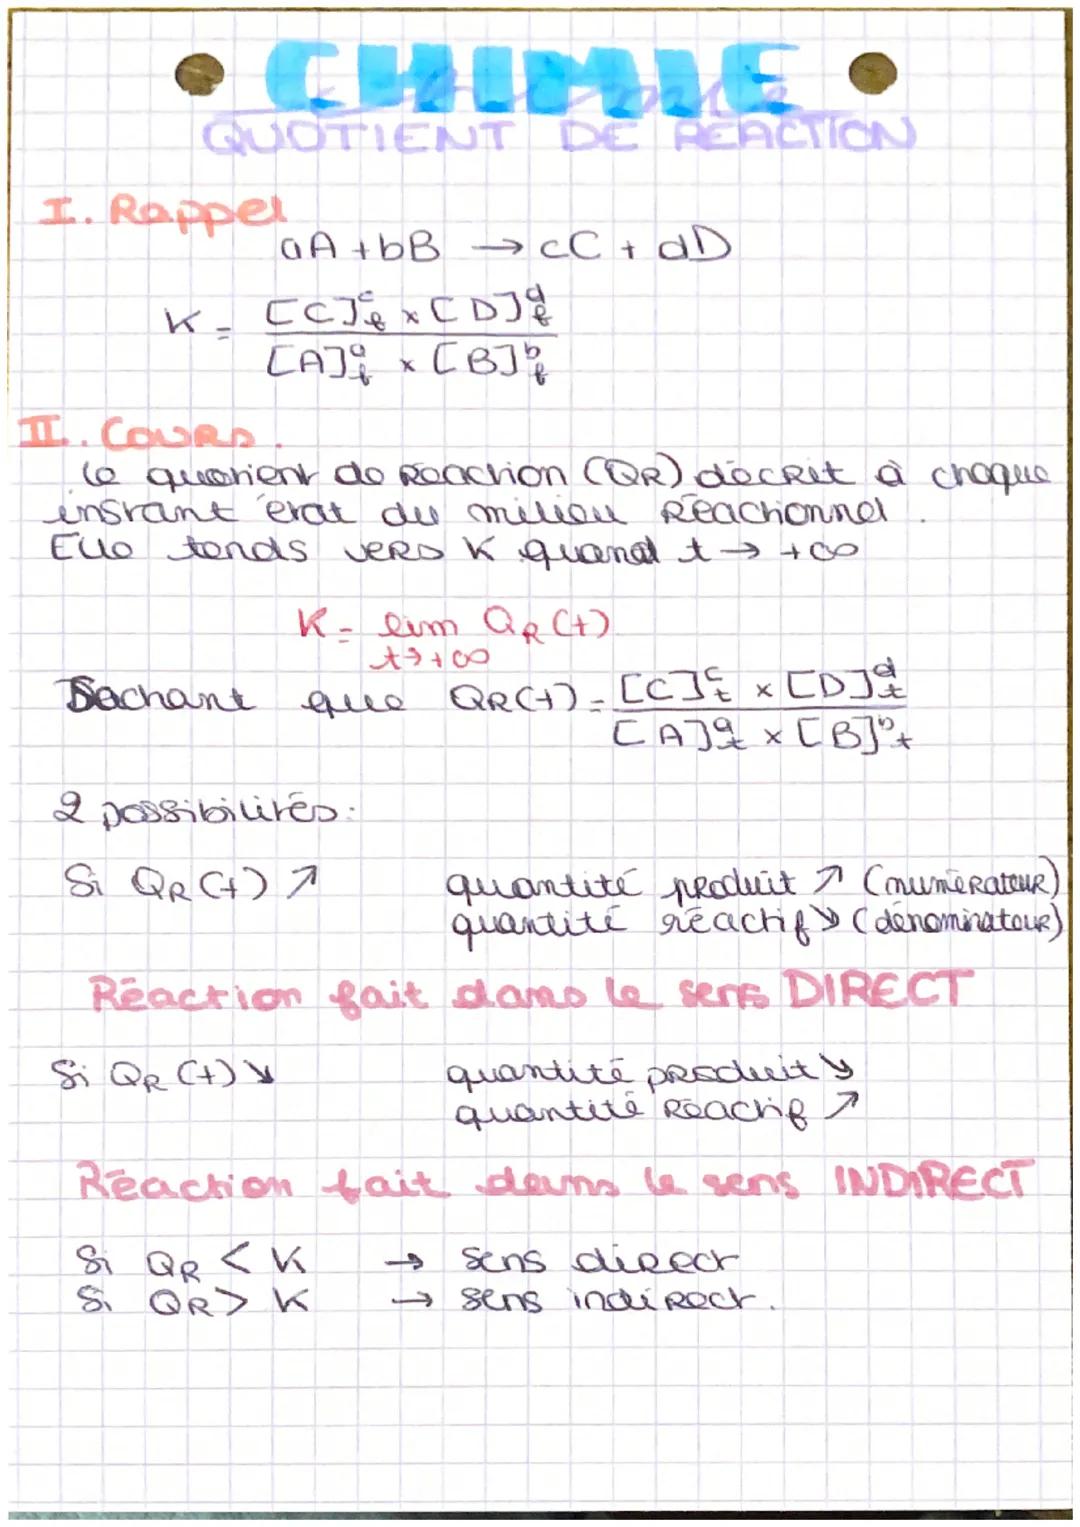 CHIMIE
QUOTIENT DE REACTION
I. Rappel
aA + bB → cC + dD
K = [C]^c_f × [D]^d_f / [A]^a_f × [B]^b_f
II. Cours.
le quotient de Réaction (QR) décrit à chaque
instant état du milieu Réactionnel.
Elle tends vers K quand t → +∞
K = lim QR(t)
t→+∞
Sachant que QR(t) = [C]^c_t × [D]^d_t / [A]^a_t × [B]^b_t
2 possibilités:
Si QR(t) ↗ quantité produit ↗ (numérateur)
quantité réactif ↘ (dénominateur)
Réaction fait dans le sens DIRECT
Si QR(t) ↘ quantité produit ↘
quantité Réactif ↗
Réaction fait dans le sens INDIRECT
Si QR < K → sens direct
Si QR > K → sens indirect.